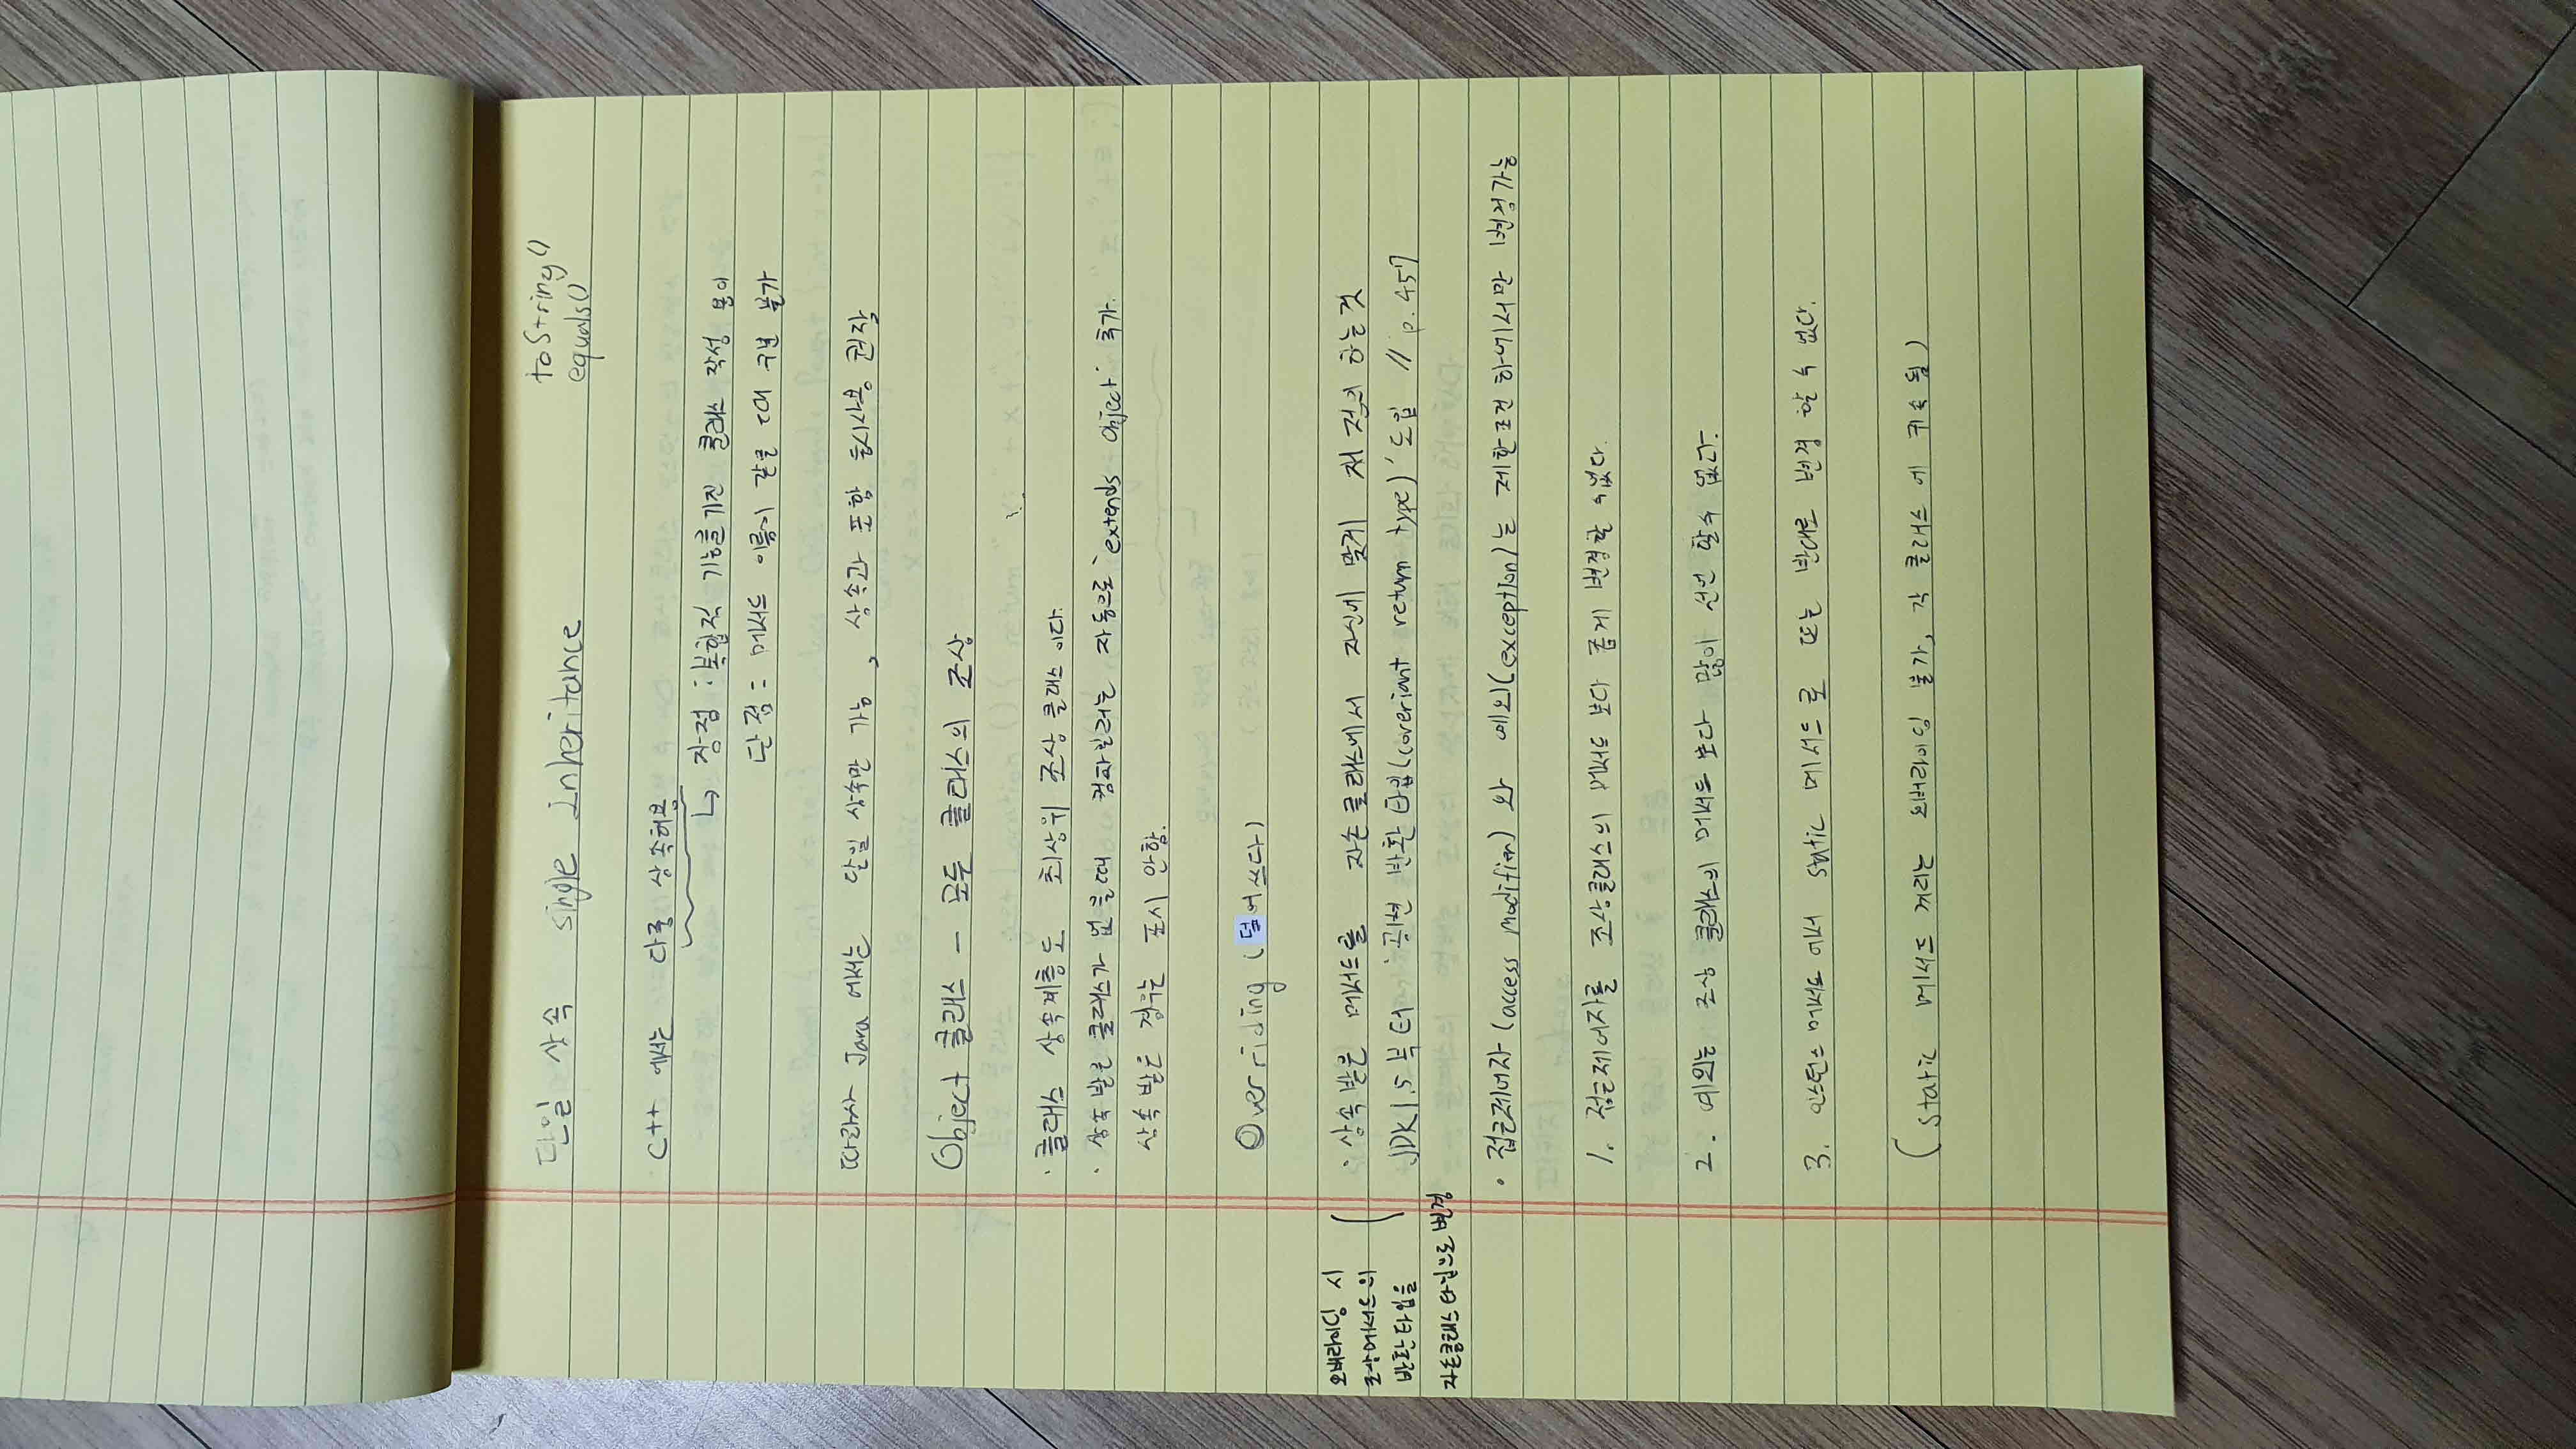 단일 상속 single inheritance
toString()
equals()
C++ 에서는 다중 상속허용
↳ 장점 : 복합적 기능을가진 클래스 작성 용이
단점 : 메서드 이름이 같을 때 구분 불가
따라사 Java 에서는 단일 상속만 가능, 상속과 포함 동시사용 권장
Object 클래스 - 모든 클래스의 조상
· 클래스 상속계층도 최상위 조상 클래스 이다.
· 상속 받은 클래스가 없을때 컴파일러는 자동으로 'extends Object' 추가.
상속 받은 경우는 표시 안함.
Overriding (덮어쓰다)
오버라이딩 시
조상메서드의
반환타입을
자손클래스 타입으로 변경
· 상속 받은 메서드를 자손 클래스에서 자신에 맞게 재 정의 하는것
JDK1.5 부터 '공변 반환 타입(coveriant return type)' 도입 // p.457
· 접근제어자 (access modifier) 와 예외(exception)는 제한조건 하에서만 변경가능
1. 접근제어자를 조상클래스의 메서드 보다 좁게 변경할 수없다.
2. 예외는 조상 클래스의 메서드 보다 많이 선언 할수 없다.
3. 인스턴스 메서드 에서 static 메서드 로 또는 반대로 변경 할 수 없다.
(static 메서드 끼리는 오버라이딩 불가, 각 클래스 에 귀속 됨)